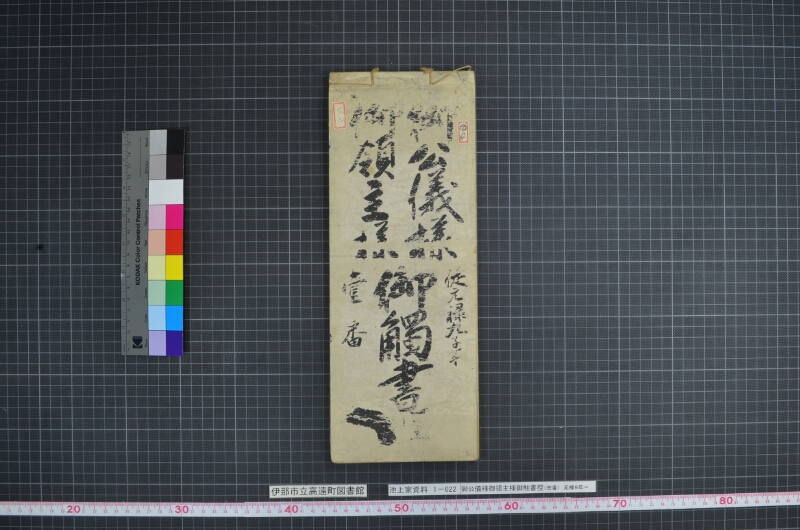 御公儀様
御領主様
御觸書
従元禄九子年
壹番
KODAK Color Control Patches
伊那市立高遠町図書館
池上家資料 1-022 御公儀様御領主様御触書控(壱番) 元禄9年~
20 30 40 50 60 70 80